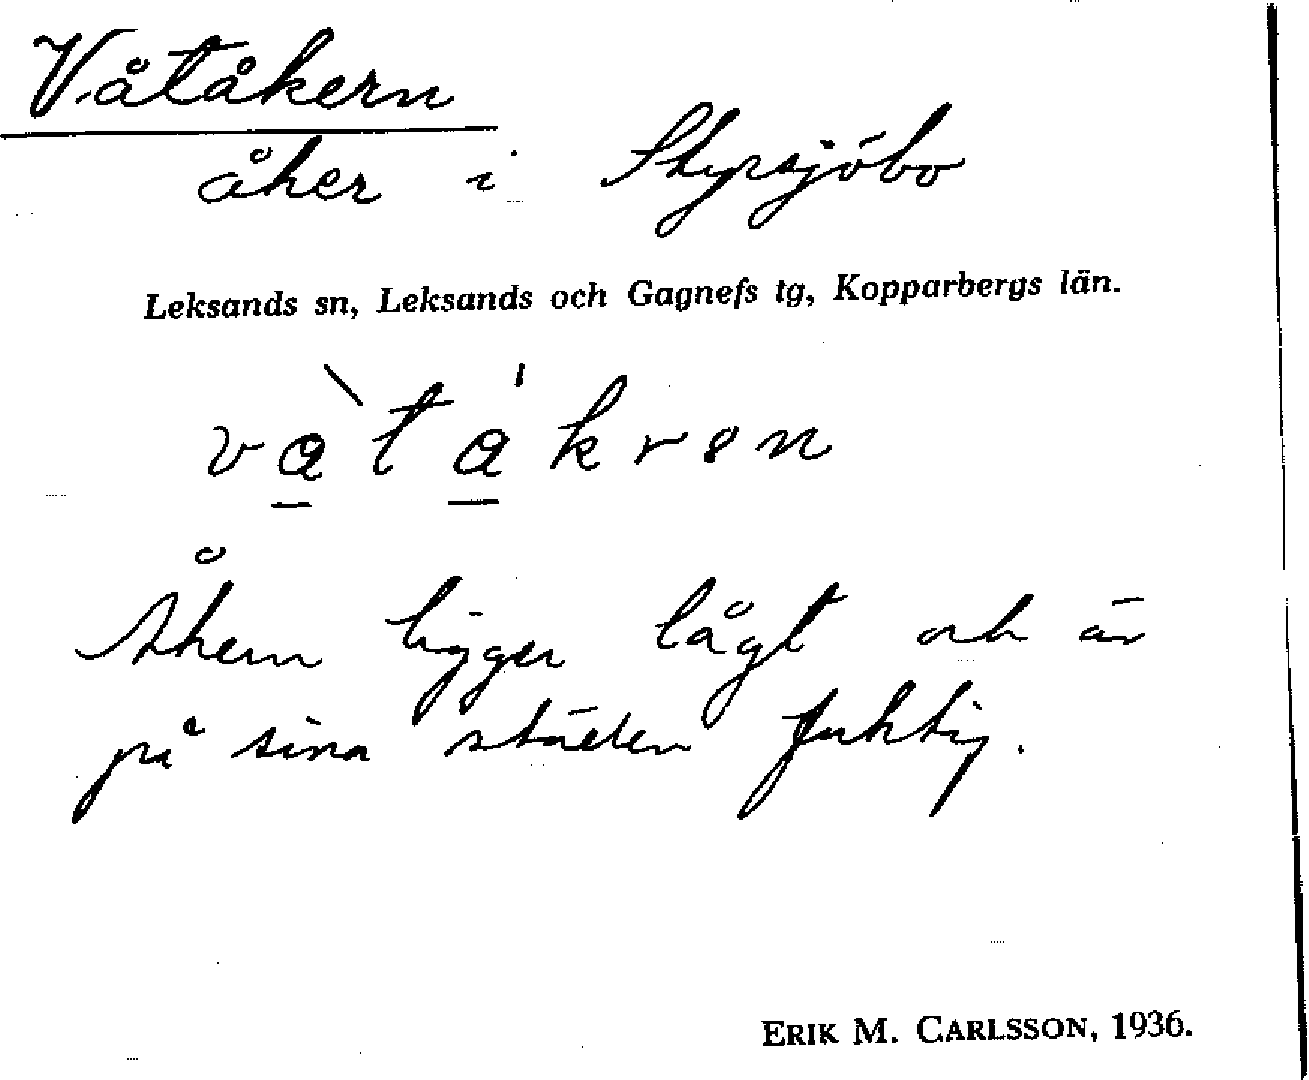 Våtåkern
åker i Styrsjöbo
Leksands sn, Leksands och Gagnefs tg, Kopparbergs län.
Åkern ligger lågt och är
på sina ställen fuktig.
ERIK M. CARLSSON, 1936.